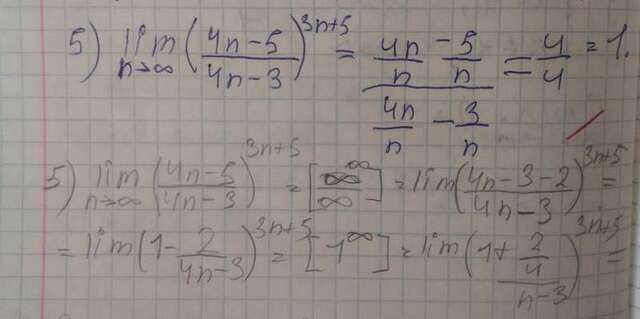 5) lim n→∞ (4n-5 / 4n-3)^3n+5 = 4n/n - 5/n / 4n/n - 3/n = 4/4 = 1.
5) lim n→∞ (4n-5 / 4n-3)^3n+5 = [∞/∞]^∞ = lim (4n-3-2 / 4n-3)^3n+5 =
= lim (1 - 2 / 4n-3)^3n+5 = [1^∞] = lim (1 + 2/4 / n-3)^3n+5 =